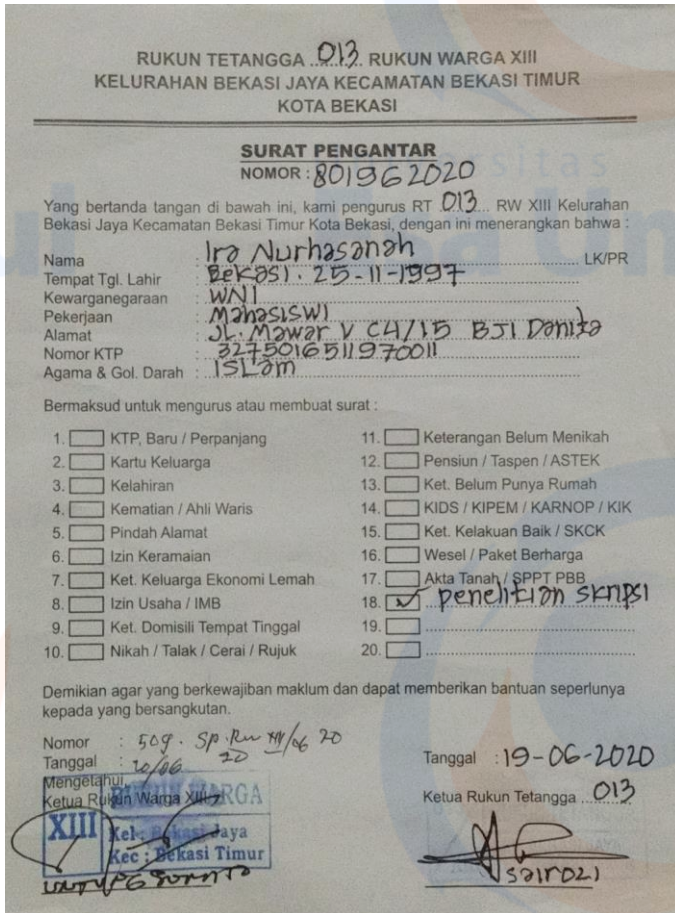 RUKUN TETANGGA 013 RUKUN WARGA XIII
KELURAHAN BEKASI JAYA KECAMATAN BEKASI TIMUR
KOTA BEKASI
SURAT PENGANTAR
NOMOR : 801962020
Yang bertanda tangan di bawah ini, kami pengurus RT 013 RW XIII Kelurahan
Bekasi Jaya Kecamatan Bekasi Timur Kota Bekasi, dengan ini menerangkan bahwa :
Nama : Ira Nurhasanah LK/PR
Tempat Tgl. Lahir : Bekasi. 25-11-1997
Kewarganegaraan : WNI
Pekerjaan : Mahasiswi
Alamat : JL. Mawar V C4/15 BJI Danita
Nomor KTP : 3275016511970011
Agama & Gol. Darah : ISLam
Bermaksud untuk mengurus atau membuat surat :
1. KTP, Baru / Perpanjang
2. Kartu Keluarga
3. Kelahiran
4. Kematian / Ahli Waris
5. Pindah Alamat
6. Izin Keramaian
7. Ket. Keluarga Ekonomi Lemah
8. Izin Usaha / IMB
9. Ket. Domisili Tempat Tinggal
10. Nikah / Talak / Cerai / Rujuk
11. Keterangan Belum Menikah
12. Pensiun / Taspen / ASTEK
13. Ket. Belum Punya Rumah
14. KIDS / KIPEM / KARNOP / KIK
15. Ket. Kelakuan Baik / SKCK
16. Wesel / Paket Berharga
17. Akta Tanah / SPPT PBB
18. ✓ penelitian skripsi
19.
20.
Demikian agar yang berkewajiban maklum dan dapat memberikan bantuan seperlunya
kepada yang bersangkutan.
Nomor : 509. Sp. Rw XIII/06 20
Tanggal : 20/06 20
Mengetahui
Ketua Rukun Warga XIII
RUKUN WARGA
XIII
Kel : Bekasi Jaya
Kec : Bekasi Timur
Tanggal : 19-06-2020
Ketua Rukun Tetangga 013
Sairozi